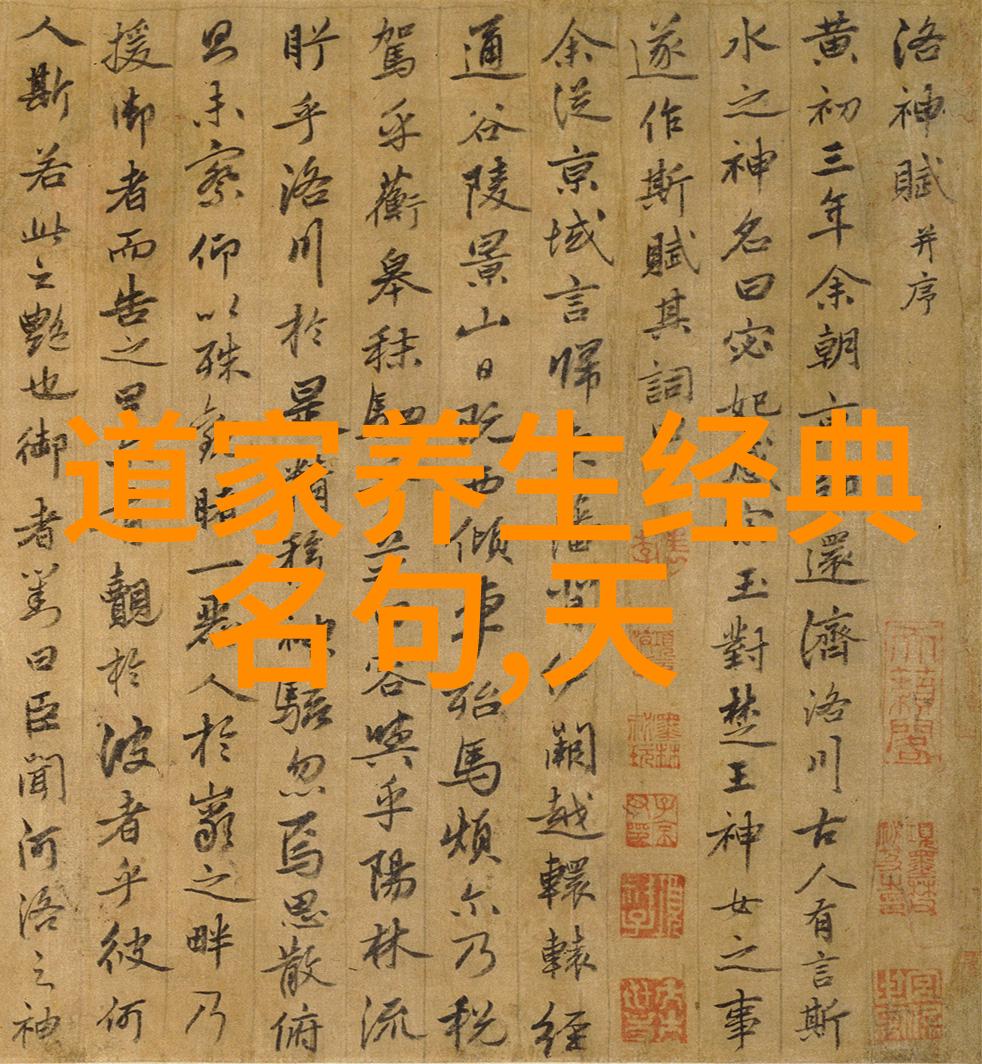 道家养生经典
名句,天
洛神賦并序
黄初三年余朝京還濟洛川古人有言斯
水之神名曰宓妃感宋玉對楚王神女之事
遂作斯賦其詞曰
余從京域言歸東藩背伊闕越轘轅經
通谷陵景山日既西傾車殆馬煩尒乃税
駕乎蘅皋秣駟乎芝田容與乎陽林流
眄乎洛川於是精移神駭忽焉思散俯
則未察仰以殊觀睹一麗人於巖之畔乃
援御者而告之曰爾有覿於彼者乎彼何
人斯若此之艷也御者對曰臣聞河洛之神